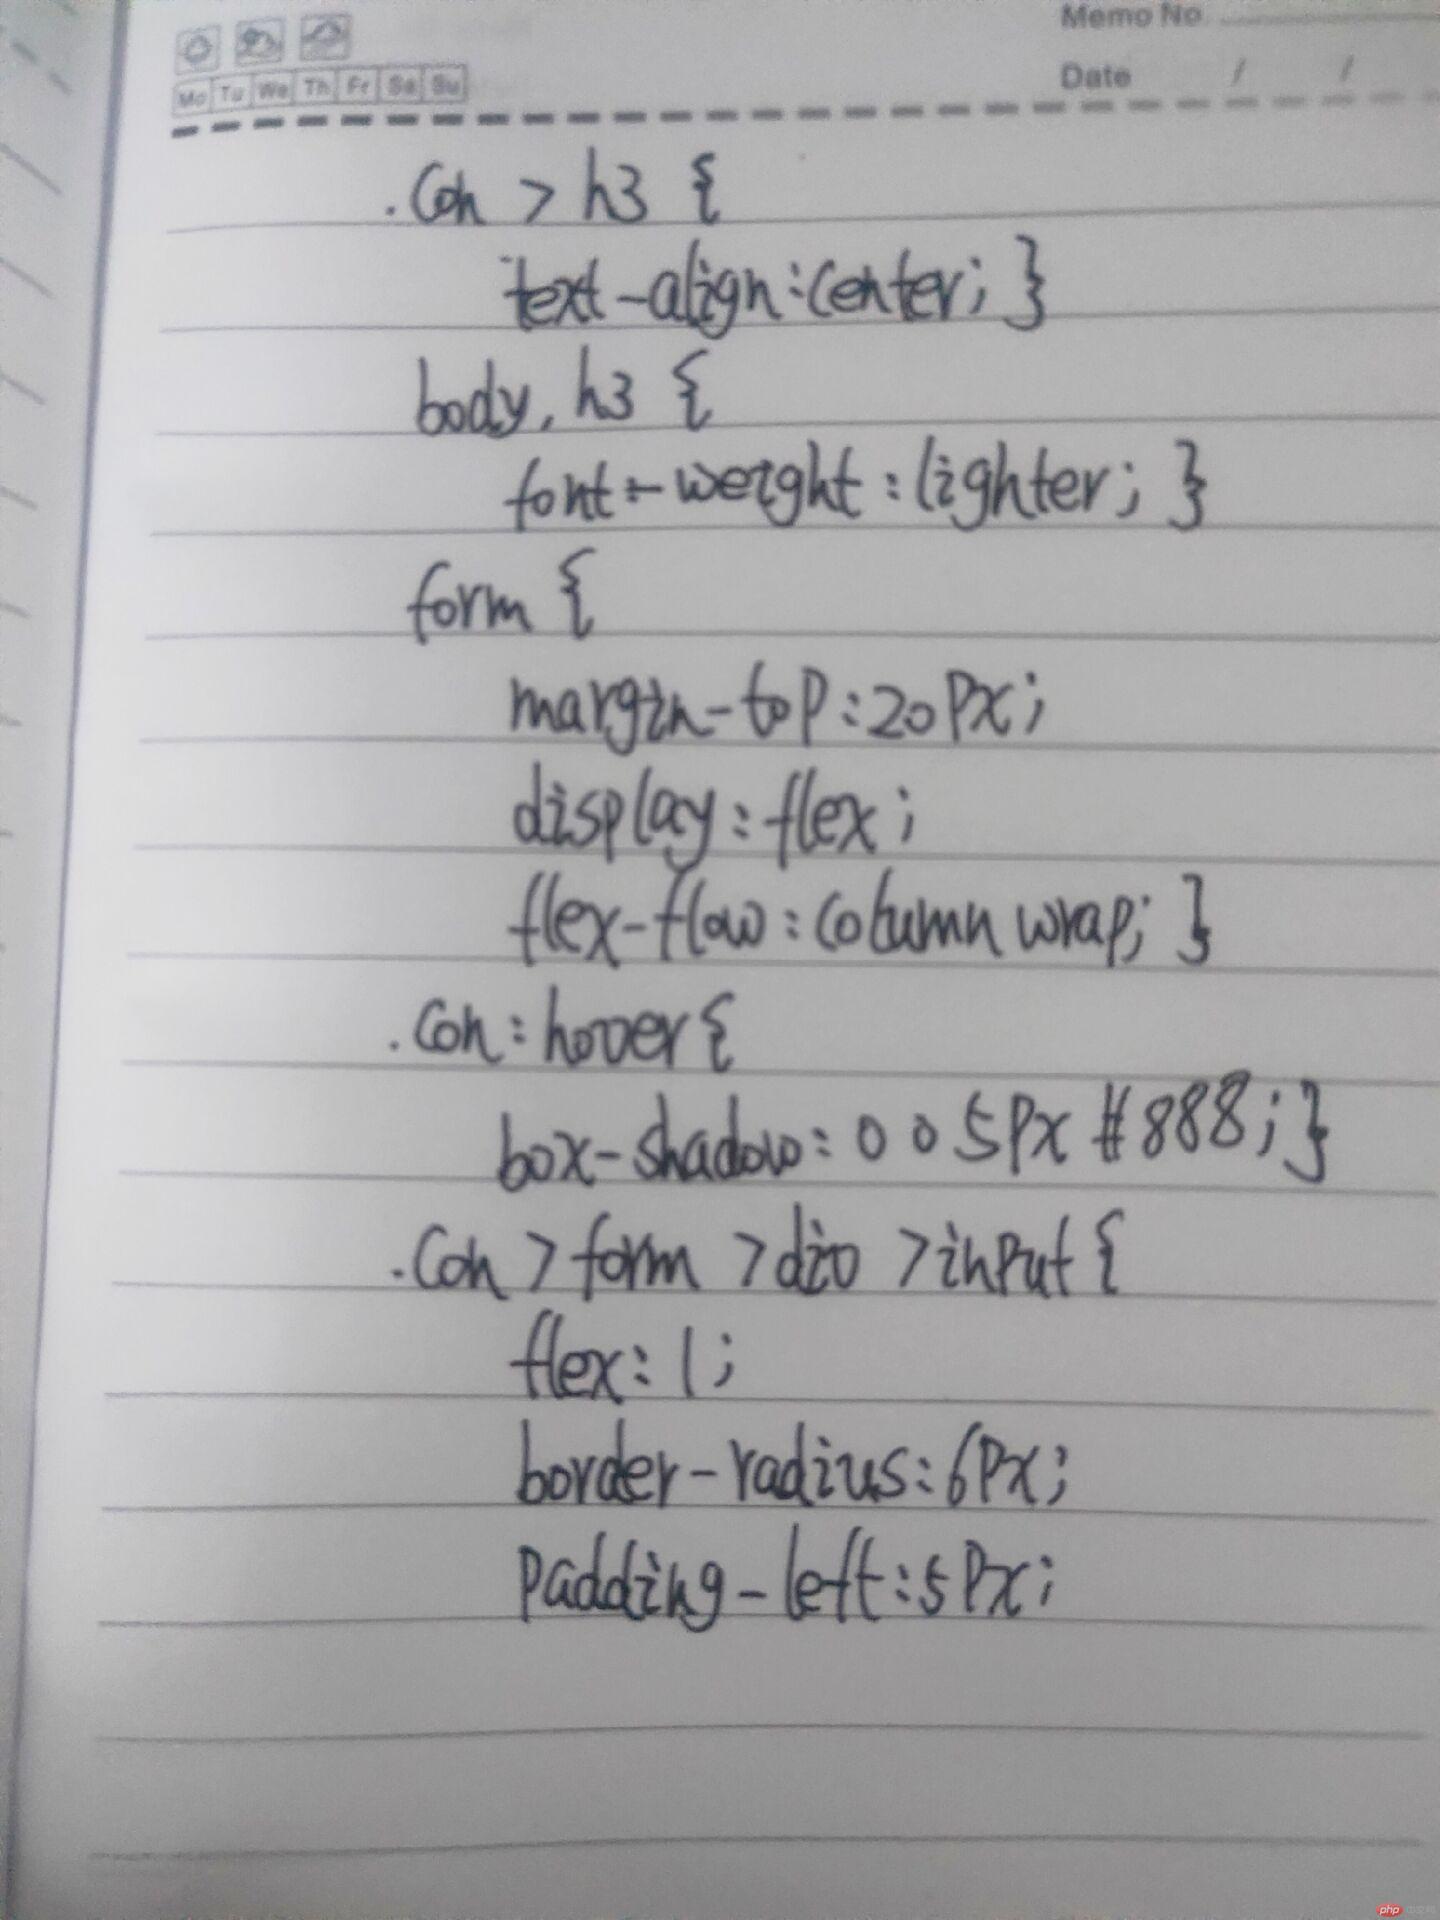 Memo No.
Mo Tu We Th Fr Sa Su
Date / /
.Con > h3 {
text-align:center; }
body, h3 {
font-weight:lighter; }
form {
margin-top:20px;
display:flex;
flex-flow:column wrap; }
.Con:hover{
box-shadow:0 0 5px #888; }
.Con >form >div >input {
flex:1;
border-radius:6px;
padding-left:5px;
php